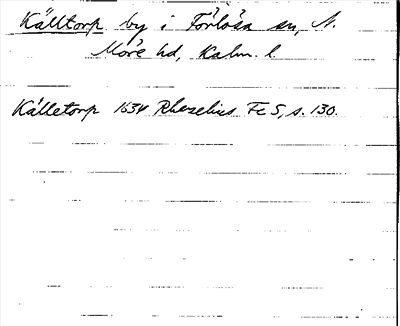 Källtorp by i Förlösa sn, N.
Möre hd, Kalm. l.
Källetorp 1634 Rhezelius Fc 5, s. 130.